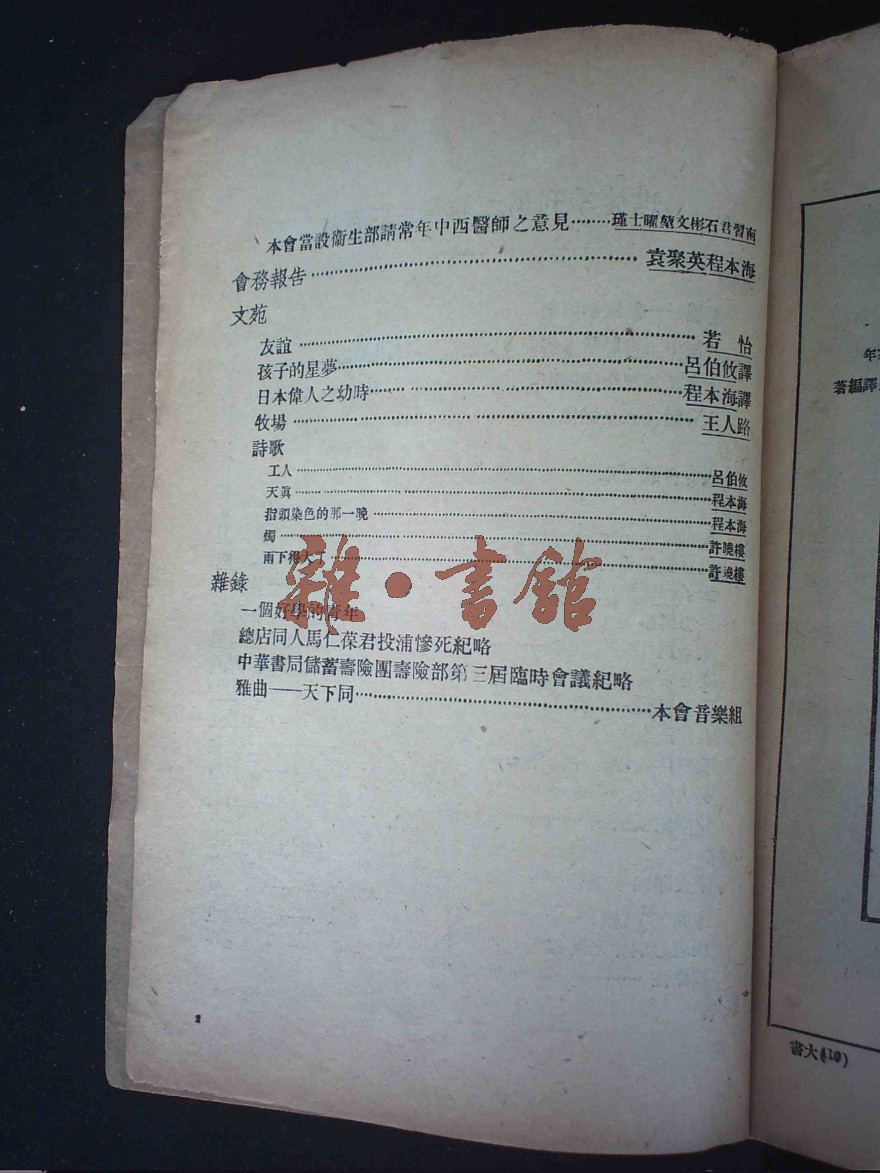 本會當設衞生部請常年中西醫師之意見………瑾士曜堃文彬石君習南
會務報告………袁聚英程本海
文苑
友誼………若怡
孩子的星夢………呂伯攸譯
日本偉人之幼時………程本海譯
牧場………王人路
詩歌
工人………呂伯攸
天眞………程本海
指頭染色的那一晚………程本海
燭………許曉樓
雨下得大了………許曉樓
雜錄
一個好學的靑年
總店同人馬仁葆君投浦慘死紀略
中華書局儲蓄壽險團壽險部第三屆臨時會議紀略
雅曲——天下同………本會音樂組
2
雜·書館
年
著編譯
書大(10)